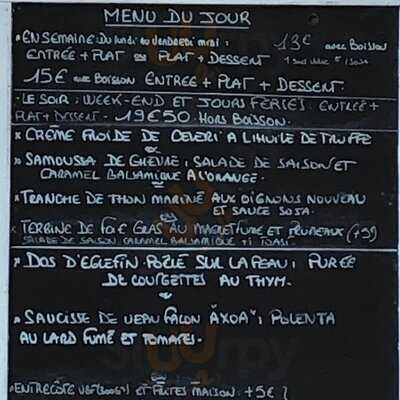 MENU DU JOUR
• EN SEMAINE DU lundi au vendredi midi : 13€ avec Boisson
ENTRÉE + PLAT ou PLAT + DESSERT
15€ avec Boisson ENTRÉE + PLAT + DESSERT.
- LE SOIR, WEEK-END ET JOURS FÉRIÉS : ENTRÉE +
PLAT + DESSERT - 19€50 - HORS BOISSON.
* CRÈME FROIDE DE CÉLERI A L'HUILE DE TRUFFE
ou
* SAMOUSSA DE CHÈVRE, SALADE DE SAISON ET
CARAMEL BALSAMIQUE A L'ORANGE -
ou
* TRANCHE DE THON MARINÉ AUX OIGNONS NOUVEAU
ET SAUCE SOJA.
ou
* TERRINE DE FOIE GRAS AU MAGRET FUMÉ ET PRUNEAUX
SALADE DE SAISON CARAMEL BALSAMIQUE
* DOS D'EGLEFIN POÊLÉ SUR LA PEAU, PURÉE
DE COURGETTES AU THYM -
ou
* SAUCISSE DE VEAU FAÇON "AXOA", POLENTA
AU LARD FUMÉ ET TOMATES -
ou
* ENTRECÔTE VBF (300GR) ET FRITES MAISON +5€